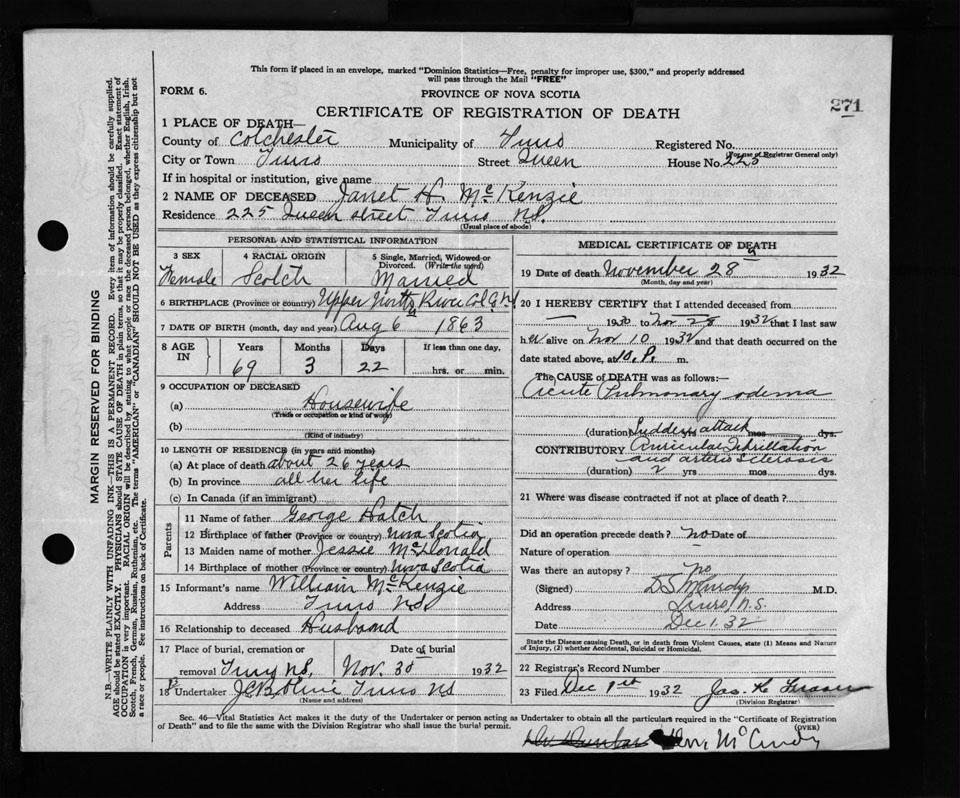 This form if placed in an envelope, marked "Dominion Statistics—Free, penalty for improper use, $300," and properly addressed
will pass through the Mail "FREE"
FORM 6.
PROVINCE OF NOVA SCOTIA
271
CERTIFICATE OF REGISTRATION OF DEATH
1 PLACE OF DEATH—
County of Colchester Municipality of Truro Registered No.
(For use of Registrar General only)
City or Town Truro Street Queen House No. 225
If in hospital or institution, give name
2 NAME OF DECEASED Janet H. McKenzie
Residence 225 Queen Street Truro N.S.
(Usual place of abode)
PERSONAL AND STATISTICAL INFORMATION
3 SEX 4 RACIAL ORIGIN 5 Single, Married, Widowed or
Divorced. (Write the word)
Female Scotch Married
6 BIRTHPLACE (Province or country) Upper North River Col. Co. N.S.
7 DATE OF BIRTH (month, day and year) Aug 6 1863
8 AGE IN Years Months Days If less than one day,
69 3 22 hrs. or min.
9 OCCUPATION OF DECEASED
(a) Housewife
(Trade or occupation or kind of work)
(b)
(Kind of industry)
10 LENGTH OF RESIDENCE (in years and months)
(a) At place of death about 26 years
(b) In province all her life
(c) In Canada (if an immigrant)
Parents
11 Name of father George Hatch
12 Birthplace of father (Province or country) Nova Scotia
13 Maiden name of mother Jessie McDonald
14 Birthplace of mother (Province or country) Nova Scotia
15 Informant's name William McKenzie
Address Truro N.S.
16 Relationship to deceased Husband
17 Place of burial, cremation or Date of burial
removal Truro N.S. Nov. 30 1932
18 Undertaker Truro N.S.
(Name and address)
MEDICAL CERTIFICATE OF DEATH
19 Date of death November 28 1932
(Month, day and year)
20 I HEREBY CERTIFY that I attended deceased from
— 1930 to Nov 28 1932 that I last saw
her alive on Nov 10 1932 and that death occurred on the
date stated above, at 10. P. m.
The CAUSE OF DEATH was as follows:—
Acute Pulmonary odema
(duration) Sudden attack yrs mos dys.
CONTRIBUTORY Auricular Fibrillation
and arterio Sclerosis
(duration) 2 yrs mos dys.
21 Where was disease contracted if not at place of death?
Did an operation precede death? no Date
Nature of operation
Was there an autopsy? no
(Signed) D S McCurdy M.D.
Address Truro N.S.
Date Dec 1. 32
State the Disease causing Death, or in death from Violent Causes, state (1) Means and Nature
of Injury, (2) whether Accidental, Suicidal or Homicidal.
22 Registrar's Record Number
23 Filed Dec 1st 1932 Jas. K.
(Division Registrar)
Sec. 46—Vital Statistics Act makes it the duty of the Undertaker or person acting as Undertaker to obtain all the particulars required in the "Certificate of Registration
of Death" and to file the same with the Division Registrar who shall issue the burial permit.
(OVER)
Dr Dunbar McCurdy
MARGIN RESERVED FOR BINDING
N.B.—WRITE PLAINLY WITH UNFADING INK—THIS IS A PERMANENT RECORD. Every item of information should be carefully supplied.
AGE should be stated EXACTLY. PHYSICIANS should STATE CAUSE OF DEATH in plain terms, so that it may be properly classified. Exact statement of
OCCUPATION is very important. RACIAL ORIGIN will be described by stating to what people or race the deceased person belonged, whether English, Irish,
Scotch, French, German, Russian, Ruthenian, etc. The terms "AMERICAN" or "CANADIAN" SHOULD NOT BE USED as they express citizenship but not
a race or people. See instructions on back of Certificate.